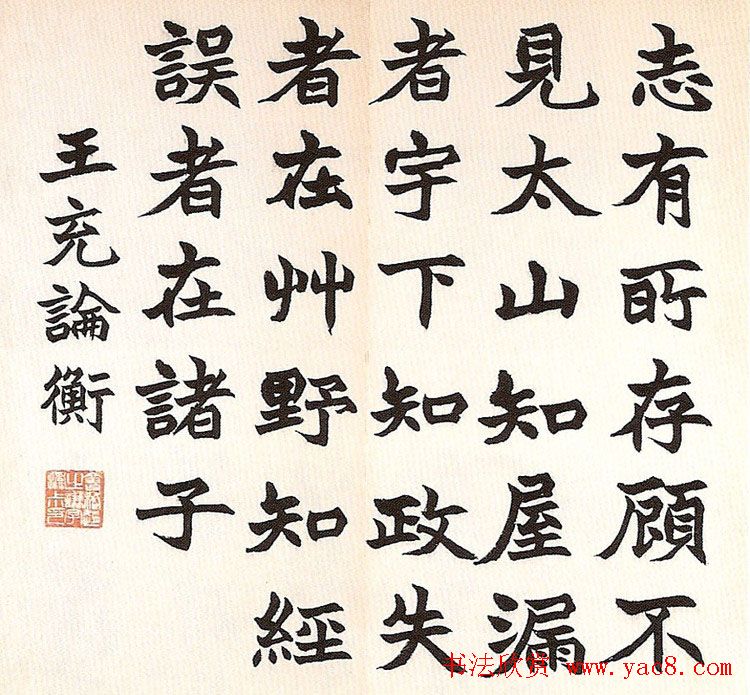 志有所存顧不
見太山知屋漏
者宇下知政失
者在艸野知經
誤者在諸子
王充論衡
书法欣赏 www.yac8.com